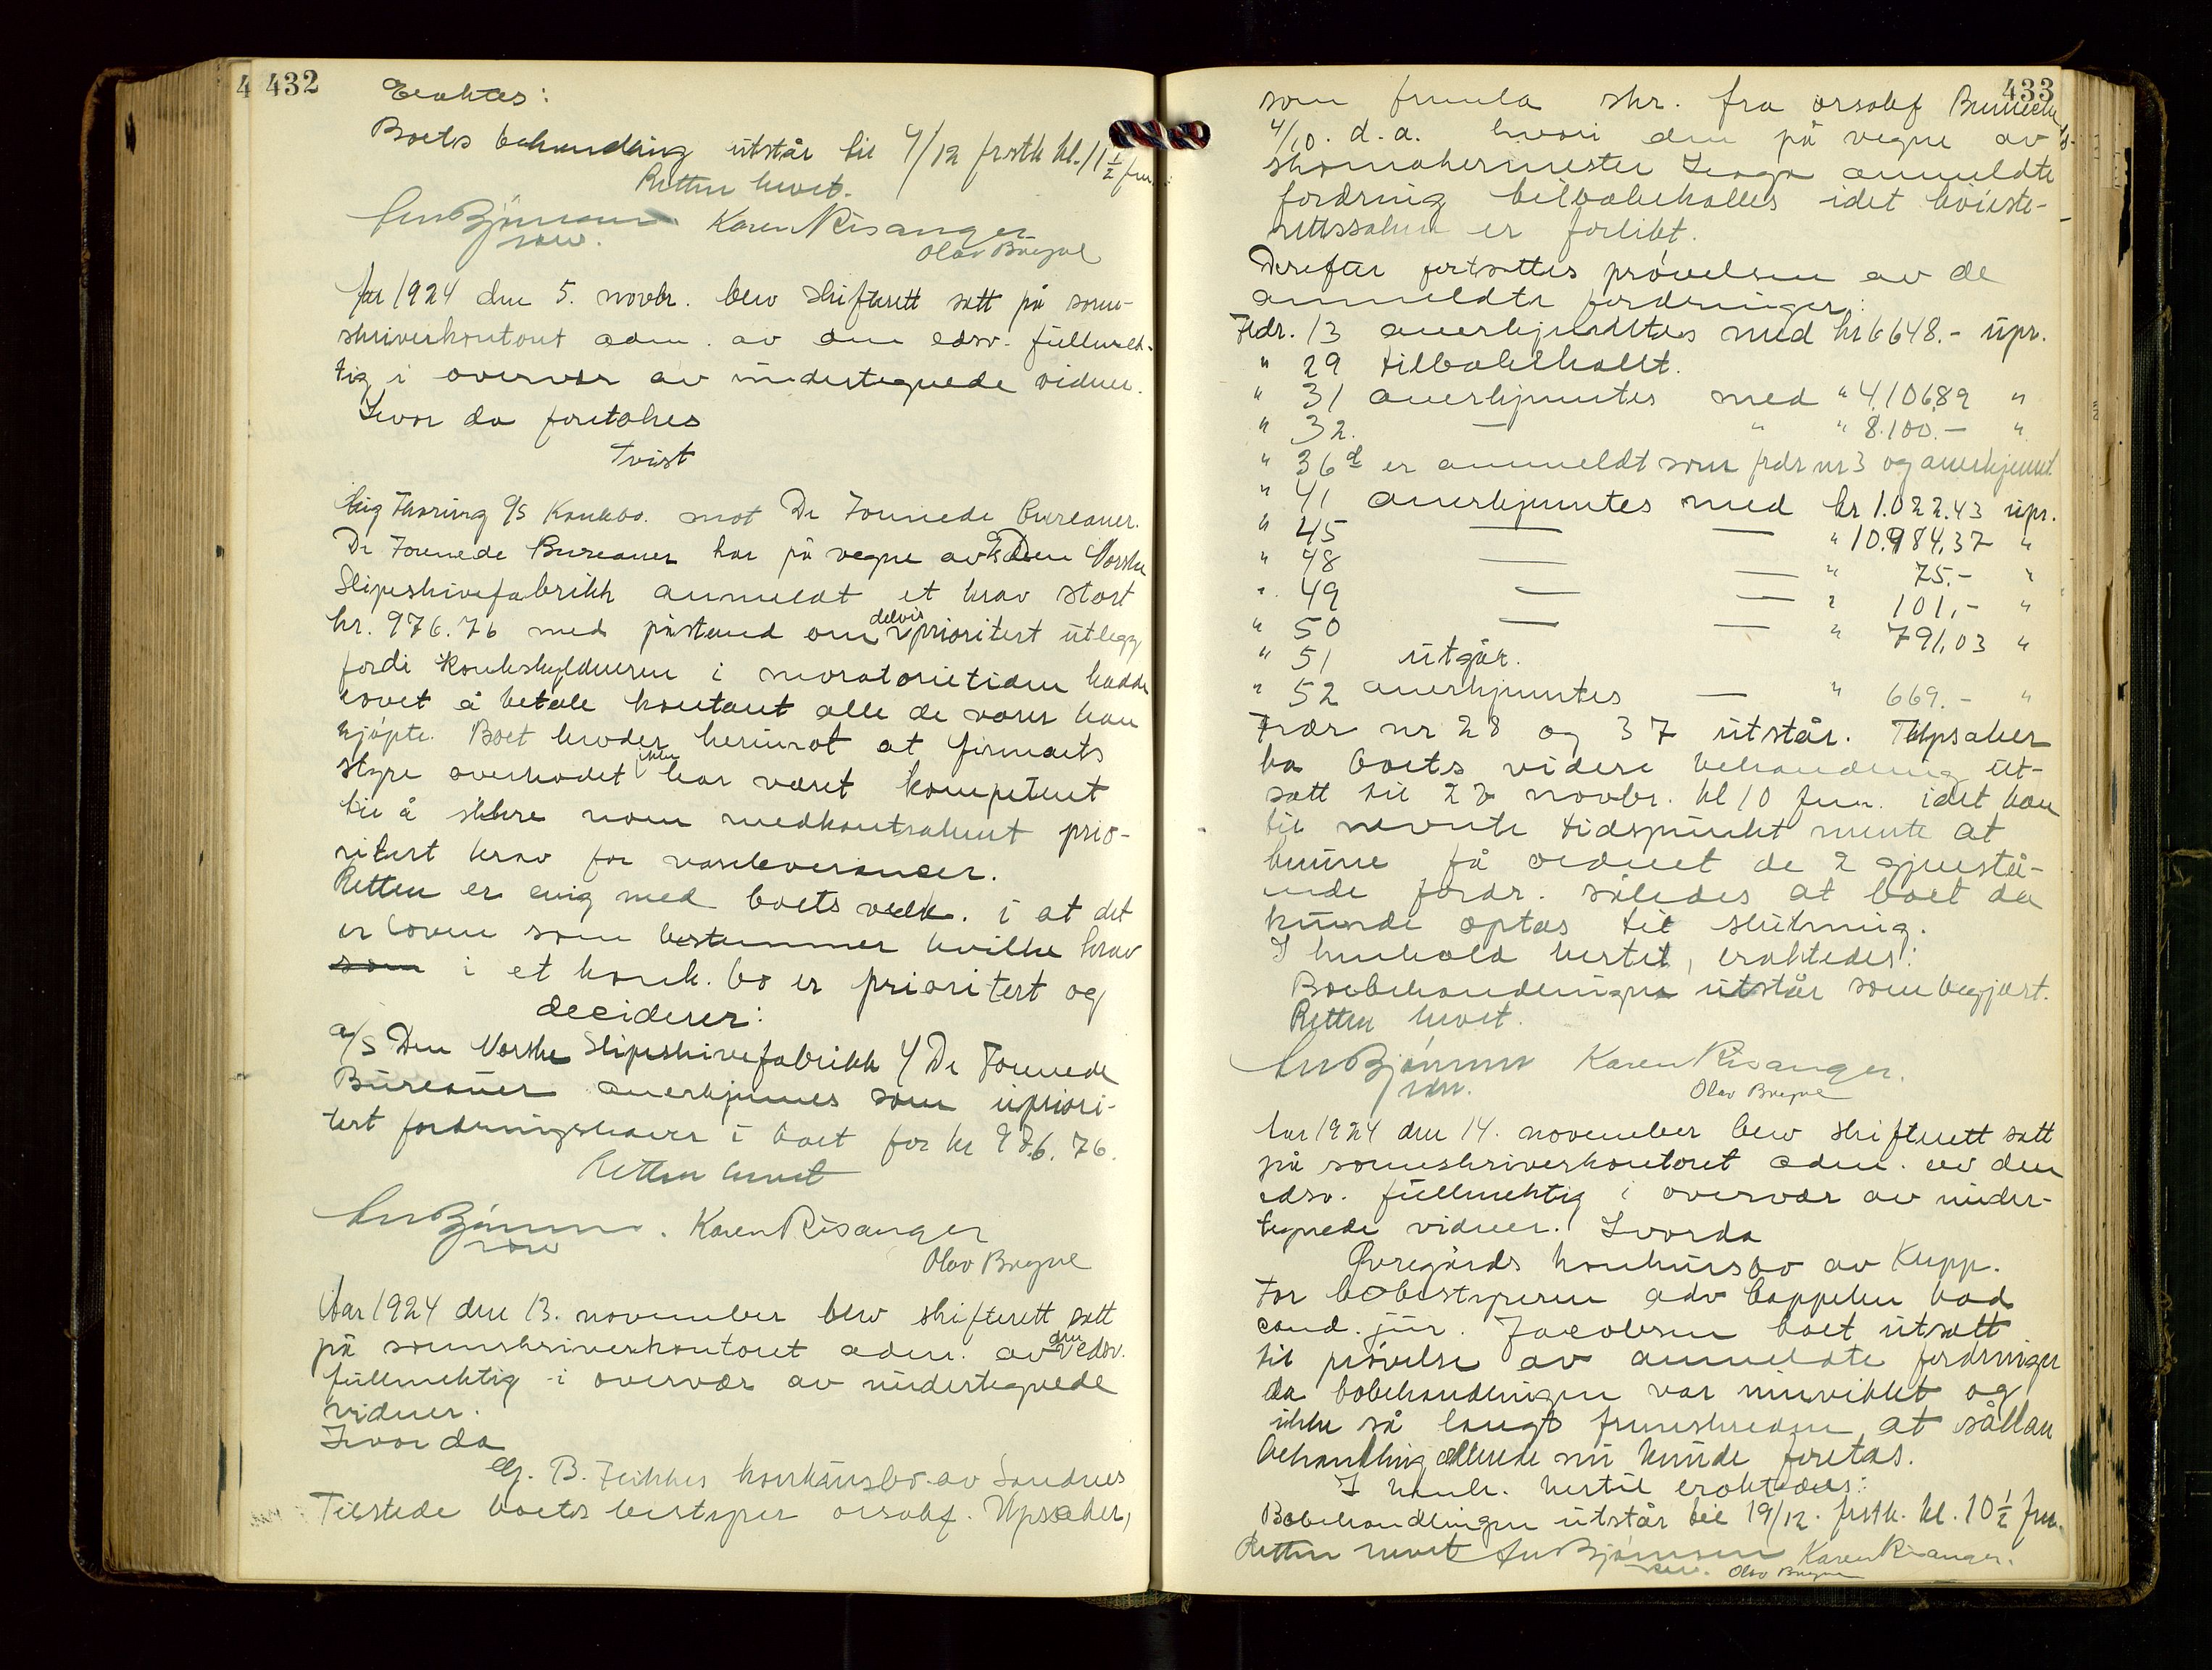 432
Eraktes:
Boets behandling utstår til 4/12 frstk kl. 11 1/2 fm.
Retten hevet.
Bjørnsen Karen Risanger
sew. Olav Bugne
Aar 1924 den 5. novbr. blev skifterett satt på soren-
skriverkontoret adm. av den edsv. fullmek-
tig i overvær av undertegnede vidner.
Hvor da foretokes
Tvist
Thoring A/S Konkbo. mot De Forenede Bureauer.
De Forenede Bureauer har på vegne av A/S Den Norske
Slipeskivefabrikk anmeldt et krav stort
kr. 976.76 med påstand om delvis prioritert utlegg
fordi konkskyldneren i moratorietiden hadde
lovet å betale kontant alle de varer han
kjøpte. Boet hevder herimot at firmaets
styre overhodet ikke har været kompetent
til å sikre noen medkontrahent prio-
ritert krav for vareleveranser.
Retten er enig med boets vedk. i at det
er loven som bestemmer hvilke krav
som i et konk. bo er prioritert og
deciderer:
A/S Den Norske Slipeskivefabrikk v/ De Forenede
Bureauer anerkjennes som upriori-
tert fordringshaver i boet for kr 976.76.
Retten hevet
Bjørnsen. Karen Risanger
sew Olav Bugne
Aar 1924 den 13. november blev skifterett satt
på sorenskriverkontoret adm. av den edsv.
fullmektig i overvær av undertegnede
vidner.
Hvor da
B. Fickkes konkursbo av Sandnes
Tilstede boets bestyrer orsakf. Upsaker,
433
som fremla skr. fra orsakf
4/10. d.a. hvori den på vegne av
skomakermester anmeldte
fordring tilbakekalles idet høieste-
rettssaken er forlikt.
Derefter fortsattes prøvelsen av de
anmeldte fordringer:
Frdr. 13 anerkjentes med kr 6648.- upr.
" 29 tilbakekalt.
" 31 anerkjentes med " 4,106,89 "
" 32. — " " 8.100.- "
" 36 d er anmeldt som frdr nr 3 og anerkjent
" 41 anerkjentes med kr 1.022.43 upr.
" 45 — — " 10.984,37 "
" 48 — — " 75.- "
" 49 — — " 101,- "
" 50 — — " 791,03 "
" 51 utgår.
" 52 anerkjentes — " 669.- "
Frdr nr 28 og 37 utstår. Upsaker
ba boets videre behandling ut-
satt til 28 novbr. kl 10 fm. idet han
til nevnte tidspunkt mente at
kunne få ordnet de 2 gjenstå-
ende fordr. således at boet da
kunde optas til slutning.
I henhold hertil, eraktedes:
Bobehandlingen utstår som begjært.
Retten hevet.
Bjørnsen Karen Risanger.
sew. Olav Bugne
Aar 1924 den 14. november blev skifterett satt
på sorenskriverkontoret adm. av den
edsv. fullmektig i overvær av under-
tegnede vidner. Hvorda
Øvregårds konkursbo av Klepp.
For bobestyreren adv Cappelen bad
cand. jur. Jacobsen boet utsatt
til prøvelse av anmeldte fordringer
da bobehandlingen var innviklet og
ikke så langt fremskreden at sådan
behandling allerede nu kunde foretas.
I henh. hertil eraktedes:
Bobehandlingen utstår til 19/12. frstk. kl. 10 1/2 fm.
Retten hevet Bjørnsen Karen Risanger.
sew. Olav Bugne